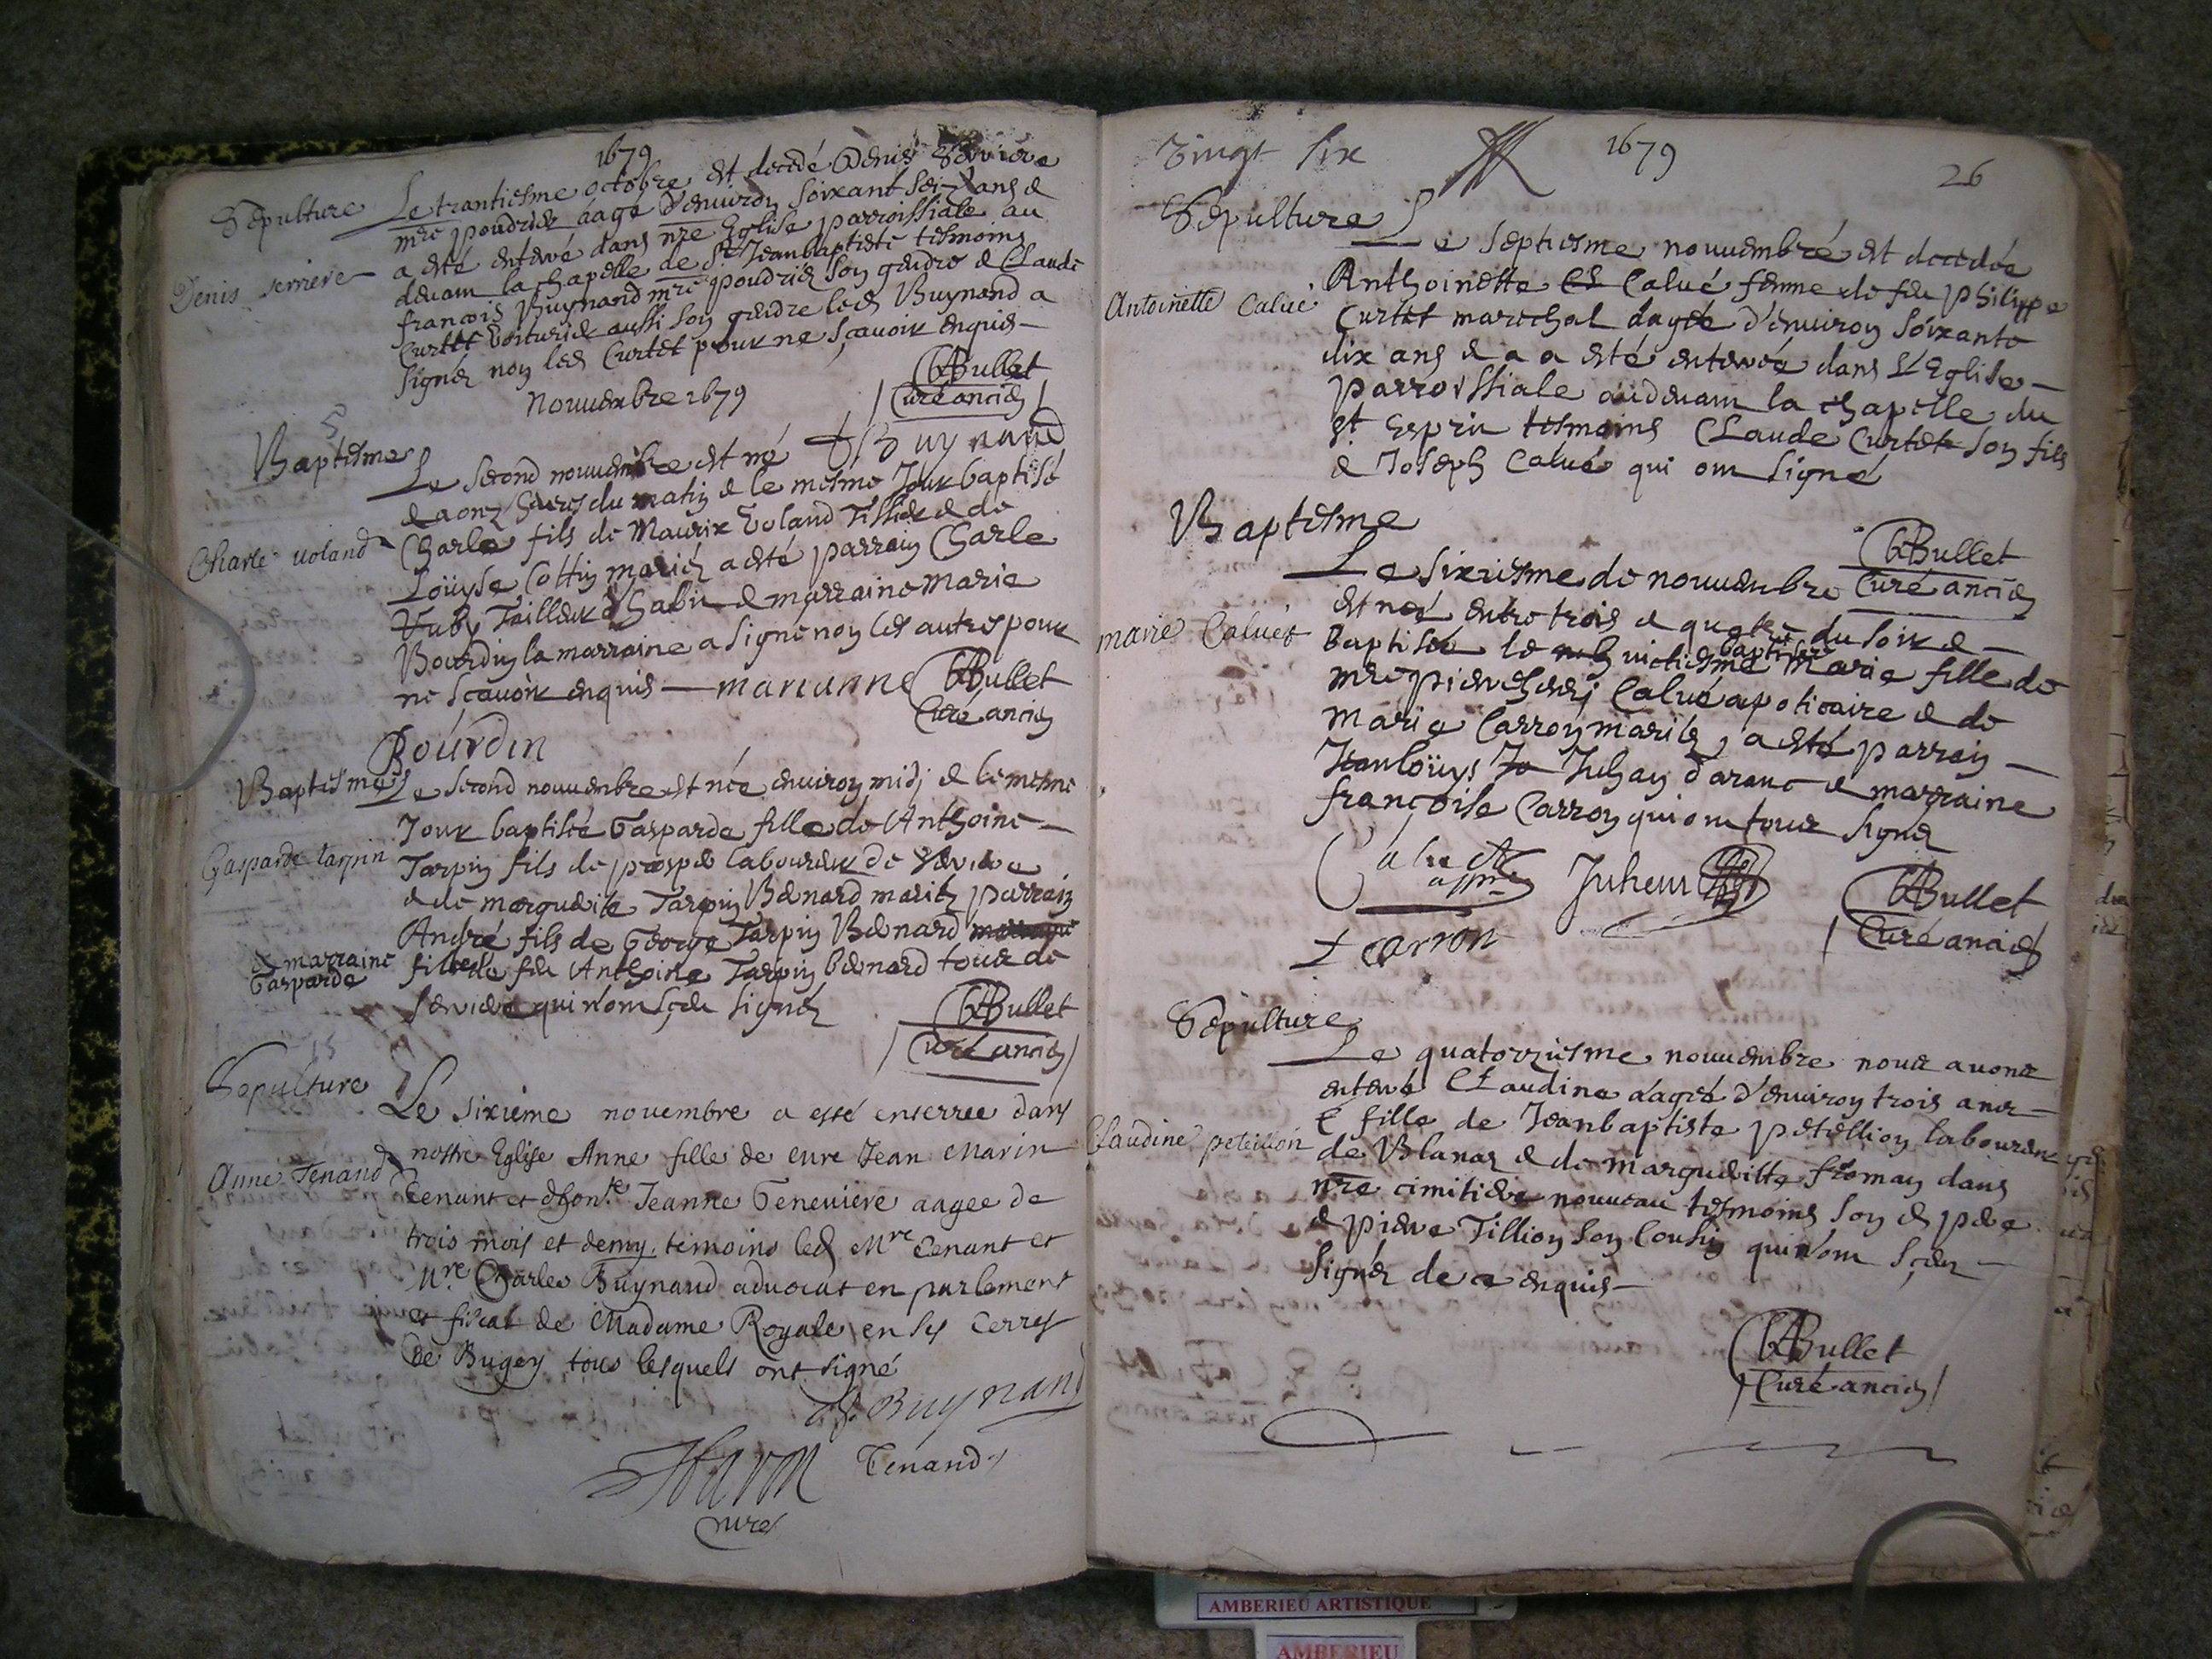 1679
Sepulture Le trantiesme octobre est decedé Denis Serriere
mre poudrier aagé d'enuiron soixant seize ans &
Denis serriere a esté enterré dans nre Eglise parroissiale au
deuam la chapelle de St Jeanbaptiste tesmoins
francois Buynand mre poudrier son gendre & Claude
Curtet voiturier aussi son gendre led Buynand a
signez non led Curtet pour ne sçauoir enquis
Bullet
Curé ancien
Nouuembre 1679
Buynand
Baptesme
Le second nouuembre est né
& a onz heures du matin & le mesme Jour baptisé
Charle voland Charles fils de Maurix Voland Tissier & de
Loüyse Cottin mariez a esté parrain Charle
Tailleur d'habit & marraine Marie
Bourdin la marraine a signé non les autres pour
ne sçauoir enquis marianne Bullet
Curé ancien
Bourdin
Baptesme Le second nouuembre est née enuiron midj & le mesme
Jour baptisée Gasparde fille de Anthoine
Gasparde tarpin Tarpin fils de prosper laboureur de
& de marguerite Tarpin Benard mariez parrain
André fils de George Tarpin Benard
& marraine Gasparde fille de feu Anthoine Tarpin benard tous de
qui n'om sçeu signez
Bullet
Curé ancien
Sepulture Le sixième nouembre a esté enterrée dans
Anne Tenand nostre Eglise Anne fille de mre Jean Marin
Tenant et d'hon.te Jeanne Geneuiere aagee de
trois mois et demy. temoins led Mre Tenant et
Mre Charles Buynand aduocat en parlement
et fiscal de Madame Royale en ses Terres
de Bugey tous lesquels ont signé
Buynand
Tenand
Curé
Vingt six 1679 26
Sepulture
Le septiesme nouuembre est decedée
Antoinette Calué Anthoinette Calué femme de feu Philippe
Curtet marechal aagée d'enuiron soixante
dix ans & a a esté enterrée dans L'Eglise
parroissiale audeuam la chapelle du
St Esprit tesmoins Claude Curtet son fils
& Joseph Calué qui om signé
Bullet
Curé ancien
Baptesme
Le sixiesme de nouuembre
est née entre trois & quatre du soir &
marie Caluet baptisée le huictiesme baptisée Marie fille de
mre pierre henrj Calué apoticaire & de
Marie Carron mariez, a esté parrain
Jeanloüys Juhan d'aranc & marraine
françoise Carron qui om tous signez
Caluet
Juhan
Bullet
Curé ancien
+ carron
Sepulture
Le quatorziesme nouuembre nous auons
enterré Claudine aagée d'enuiron trois ans
fille de Jeanbaptiste petellion laboureur
Claudine peteillon de Blanaz & de margueritte froman dans
nre cimitiere nouueau tesmoins son d pere
& pierre Tillion son Cousin qui n'om sçeu
signez de ce enquis
Bullet
Curé ancien
AMBERIEU ARTISTIQUE
AMBERIEU